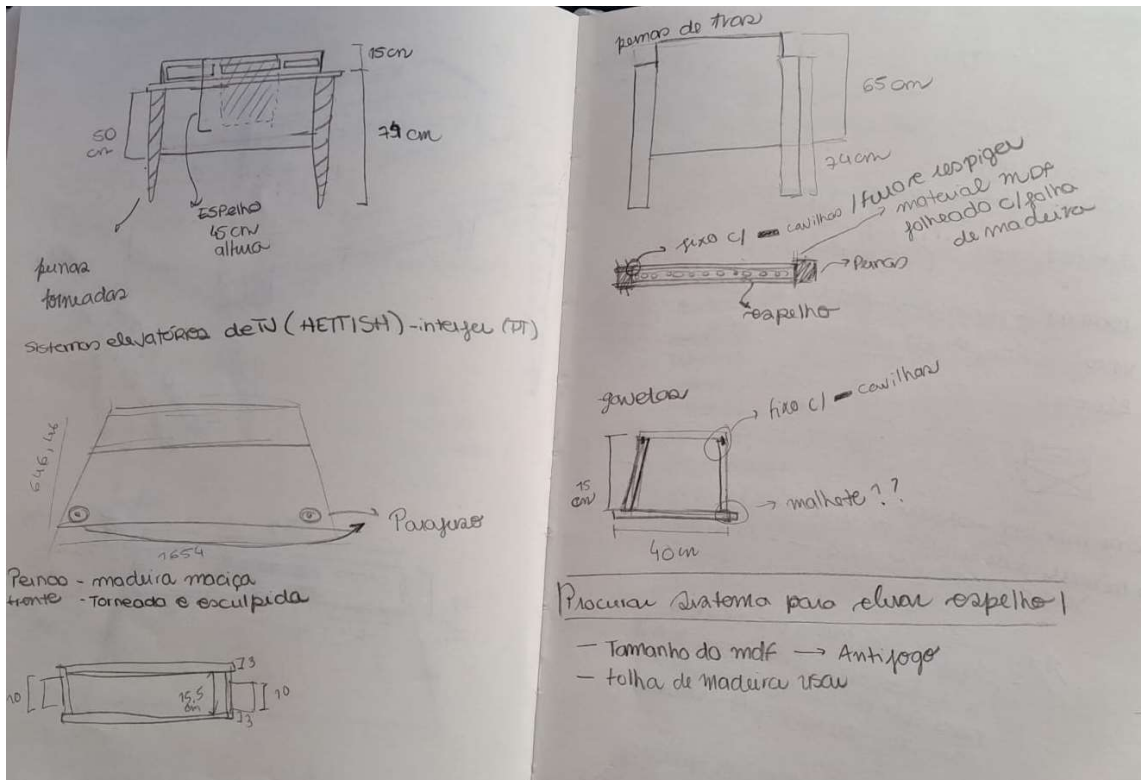 15cm
50
cm
74 cm
ESPelho
45cm
altura
pernas
torneadas
Sistemas elevatórios de TV (HETTISH) - interfer (PT)
1654
Parafuso
Pernas - madeira maciça
frente - Torneada e esculpida
10
15,5
cm
3
3
10
pernas de tras
65 cm
74cm
fixo c/ cavilhas / furo e respiga
material MDF
folheado c/ folha
de madeira
Pernas
espelho
gavetas
fixo c/ cavilhas
15
cm
malhete ??
40cm
Procurar sistema para elevar espelho!
- Tamanho do mdf → Antifogo
- folha de madeira usar